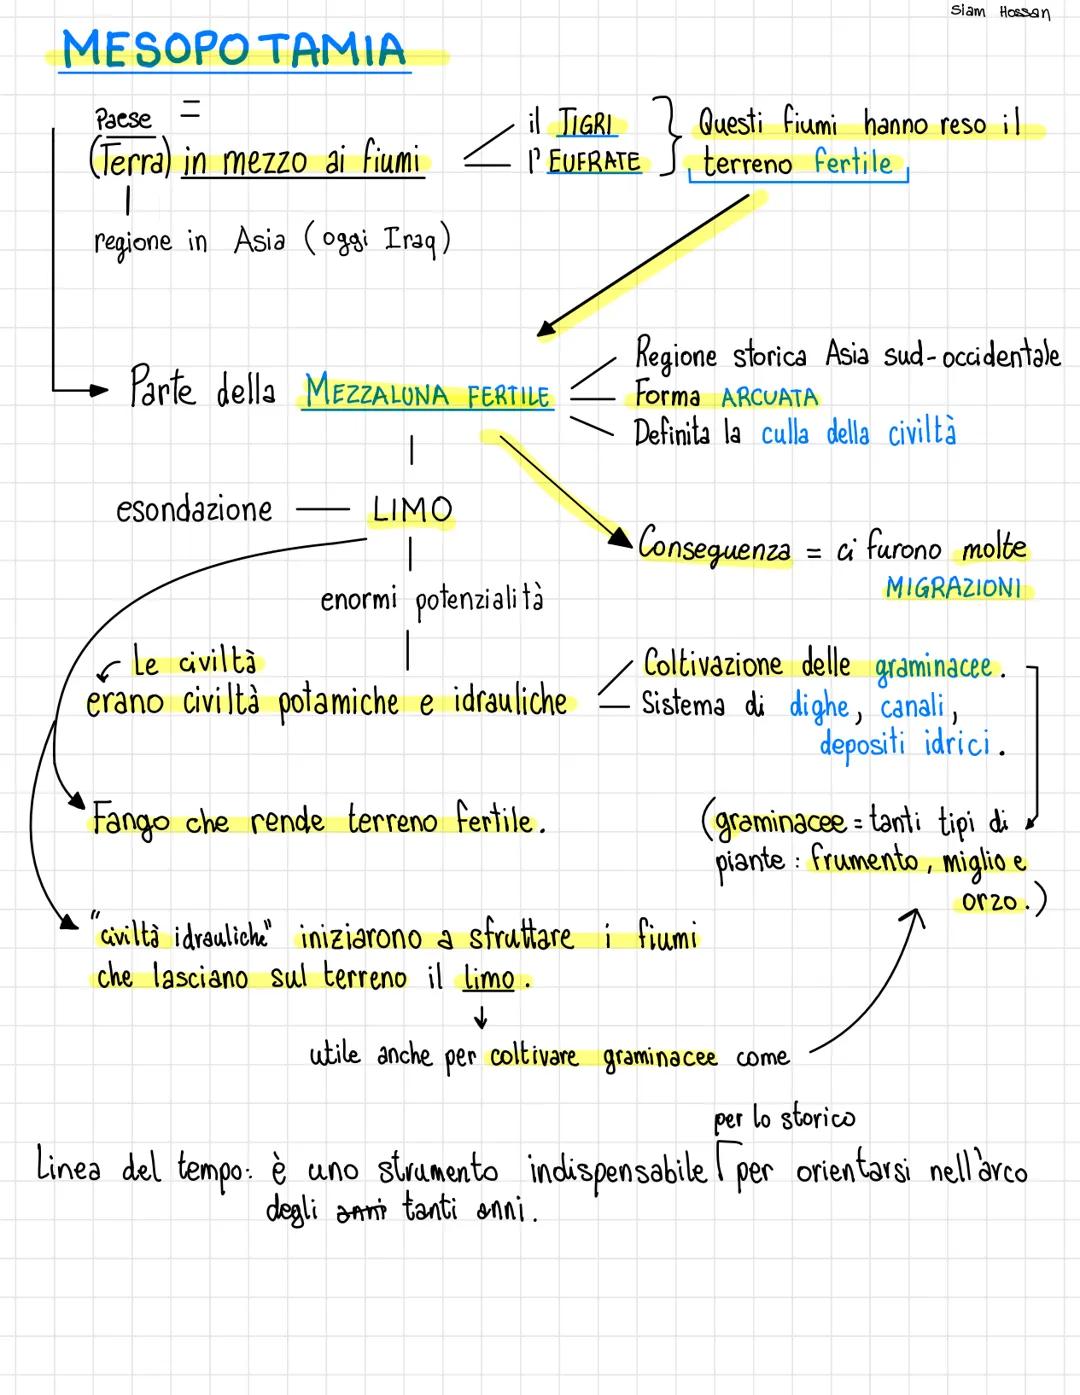 Siam Hossan
MESOPOTAMIA
Paese =
(Terra) in mezzo ai fiumi
il TIGRI
l'EUFRATE
Questi fiumi hanno reso il
terreno fertile
regione in Asia (oggi Iraq)
Parte della MEZZALUNA FERTILE
Regione storica Asia sud-occidentale
Forma ARCUATA
Definita la culla della civiltà
esondazione — LIMO
Conseguenza = ci furono molte
MIGRAZIONI
enormi potenzialità
Le civiltà
erano civiltà potamiche e idrauliche
Coltivazione delle graminacee.
Sistema di dighe, canali,
depositi idrici.
Fango che rende terreno fertile.
(graminacee = tanti tipi di
piante: frumento, miglio e
orzo.)
"civiltà idrauliche" iniziarono a sfruttare i fiumi
che lasciano sul terreno il limo.
utile anche per coltivare graminacee come
per lo storico
Linea del tempo: è uno strumento indispensabile per orientarsi nell'arco
degli anni tanti anni.